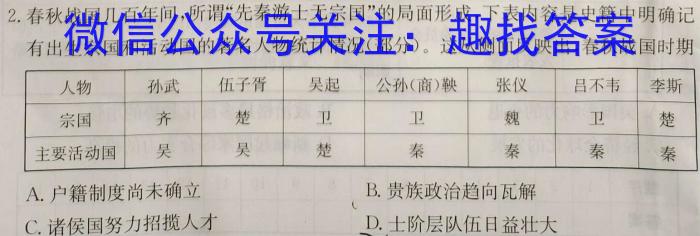 2.春秋战国几百年间,所谓“先秦游士无宗国”的局面形成,下表内容是史籍中明确记
微信公众号关注:趣找答案
有出生宗国和活动国的著名人物统计情况(部分)。这 春秋战国时期
人物 孙武 伍子胥 吴起 公孙(商)鞅 张仪 吕不韦 李斯
宗国 齐 楚 卫 卫 魏 卫 楚
主要活动国 吴 吴 楚 秦 秦 秦 秦
A.户籍制度尚未确立 B.贵族政治趋向瓦解
C.诸侯国努力招揽人才 D.士阶层队伍日益壮大